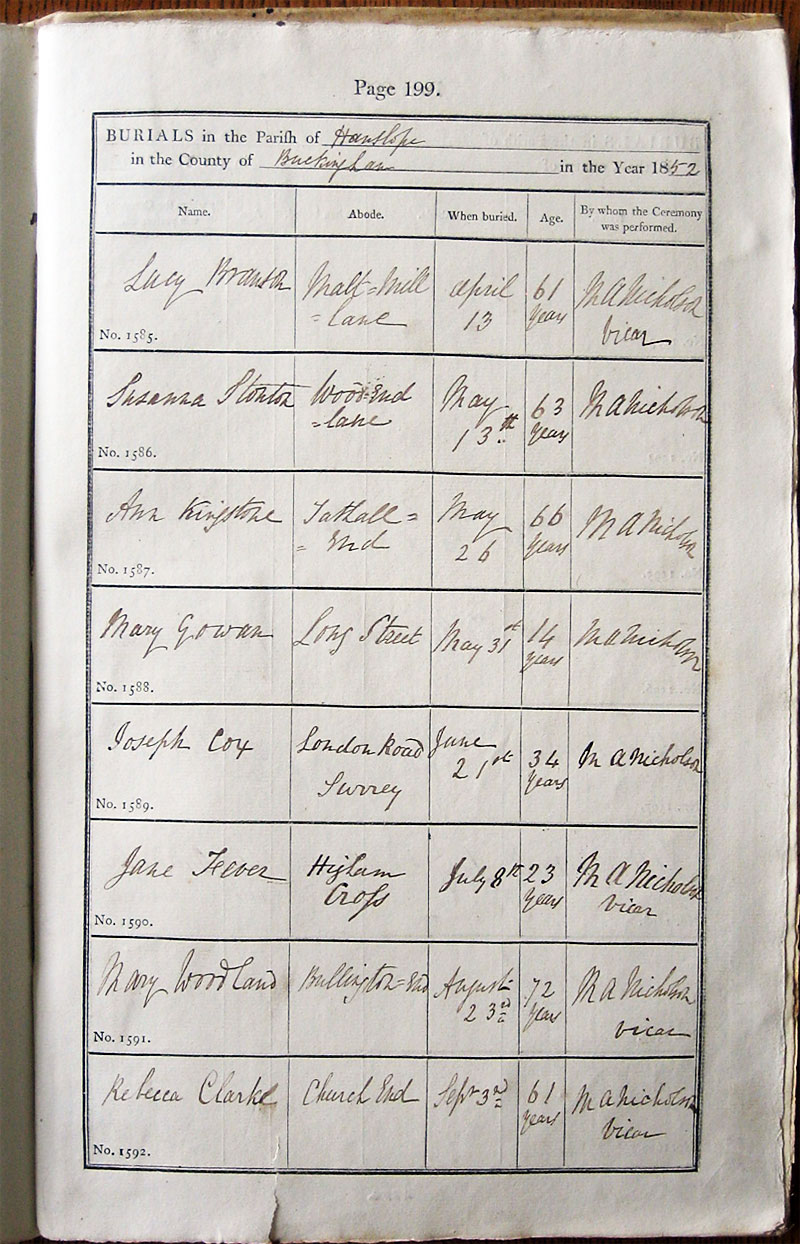 Page 199.
BURIALS in the Parish of Hanslope
in the County of Buckingham in the Year 1852
Name. Abode. When buried. Age. By whom the Ceremony was performed.
Lucy Branson Malt=Mill April 61 M A Nicholson
=lane 13 years Vicar
No. 1585.
Susanna Stonton Wood=End May 63 M A Nicholson
=lane 13th years
No. 1586.
Ann Kingstone Tathall= May 66 M A Nicholson
=End 26 years
No. 1587.
Mary Gowan Long Street May 31st 14 M A Nicholson
years
No. 1588.
Joseph Cox London Road June 34 M A Nicholson
Surrey 21st years
No. 1589.
Jane Fever Higham July 8th 23 M A Nicholson
Cross years Vicar
No. 1590.
Mary Woodland Bullington=End August 72 M A Nicholson
23rd years Vicar
No. 1591.
Rebecca Clarke Church End Septr 3rd 61 M A Nicholson
years Vicar
No. 1592.